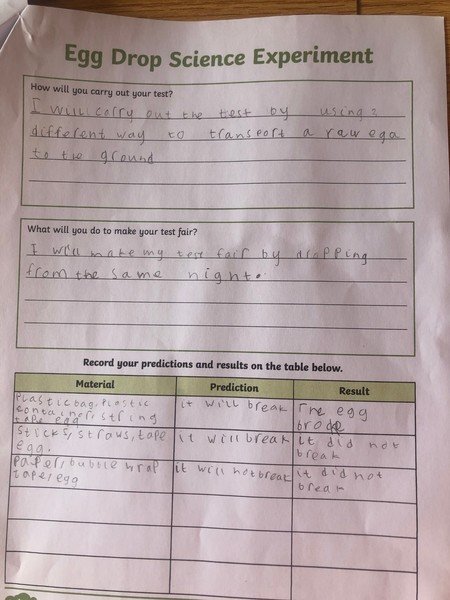 Egg Drop Science Experiment
How will you carry out your test?
I will carry out the test by using 3
different way to transport a raw egg
to the ground
What will you do to make your test fair?
I will make my test fair by dropping
from the same hight.
Record your predictions and results on the table below.
Material Prediction Result
Plastic bag, Plastic container, string tape egg
it will break
The egg broce
sticks, straws, tape egg.
it will break
it did not break
Paper, bubble wrap tape, egg
it will not break
it did not break